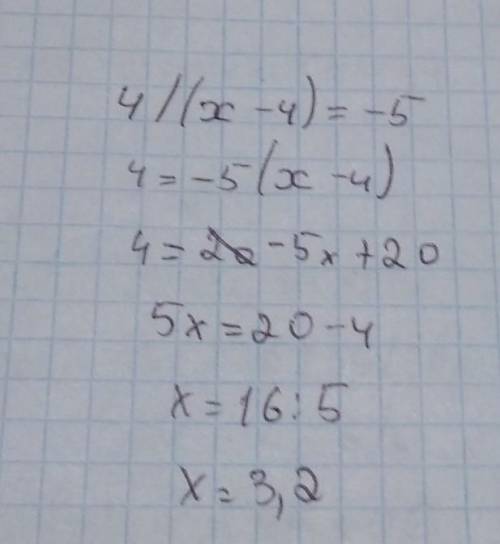 4/(x-4)=-5
4=-5(x-4)
4=-5x+20
5x=20-4
x=16:5
x=3,2